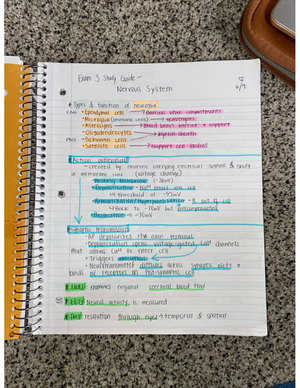 Exam 3 Study Guide -
Nervous System
4/9
* Types & function of neuroglia
CNS • Ependymal cells → central brain compartments
• Microglia (immune cells) → scavengers
• Astrocytes → blood brain barrier + support
• Oligodendrocytes → myelin sheath
PNS • Schwann cells
• Satellite cells → support cell bodies
* Action potential
- created by neurons carrying electrical signals & shift
in membrane ions (voltage change)
• Resting Membrane (-70mV)
• Depolarization - Na+ moves into cell
↳ threshold at -55mV
• Repolarization / Hyperpolarization - K+ out of cell
↳ back to -70mV but
-70mV
* Synaptic transmission
- AP depolarizes the axon terminal
- Depolarization opens voltage-gated Ca2+ channels
that allows Ca2+ to enter cell
- Triggers exocytosis
- Neurotransmitter diffuses across synaptic cleft &
binds w/ receptors on post-synaptic cell
examine regional cerebral blood flow
* EEG Neural activity is measured
resolution through eyes → temporal & spatial